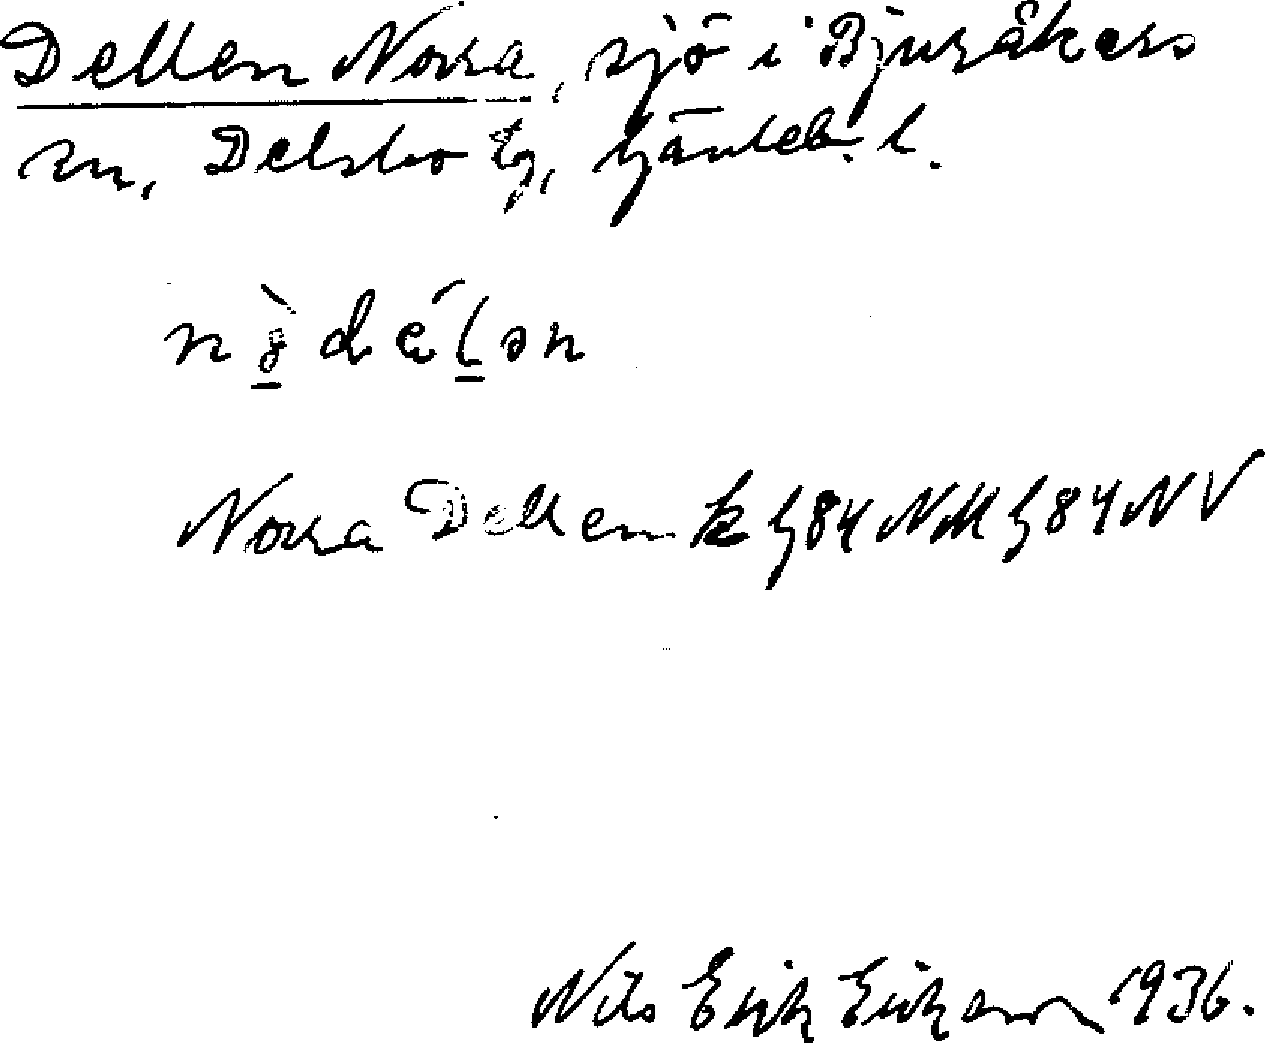 Dellen Norra, sjö i Bjuråkers
sn, Delsbo tg, Gävleb. l.
Norra Dellen k 84 NM 84 NV
Nils Erik Eriksson 1936.